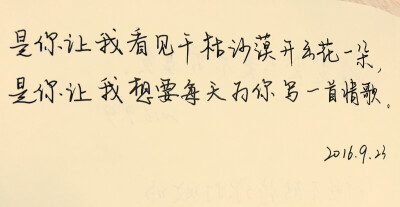 是你让我看见干枯沙漠开出花一朵，
是你让我想要每天为你写一首情歌。
2016.9.23